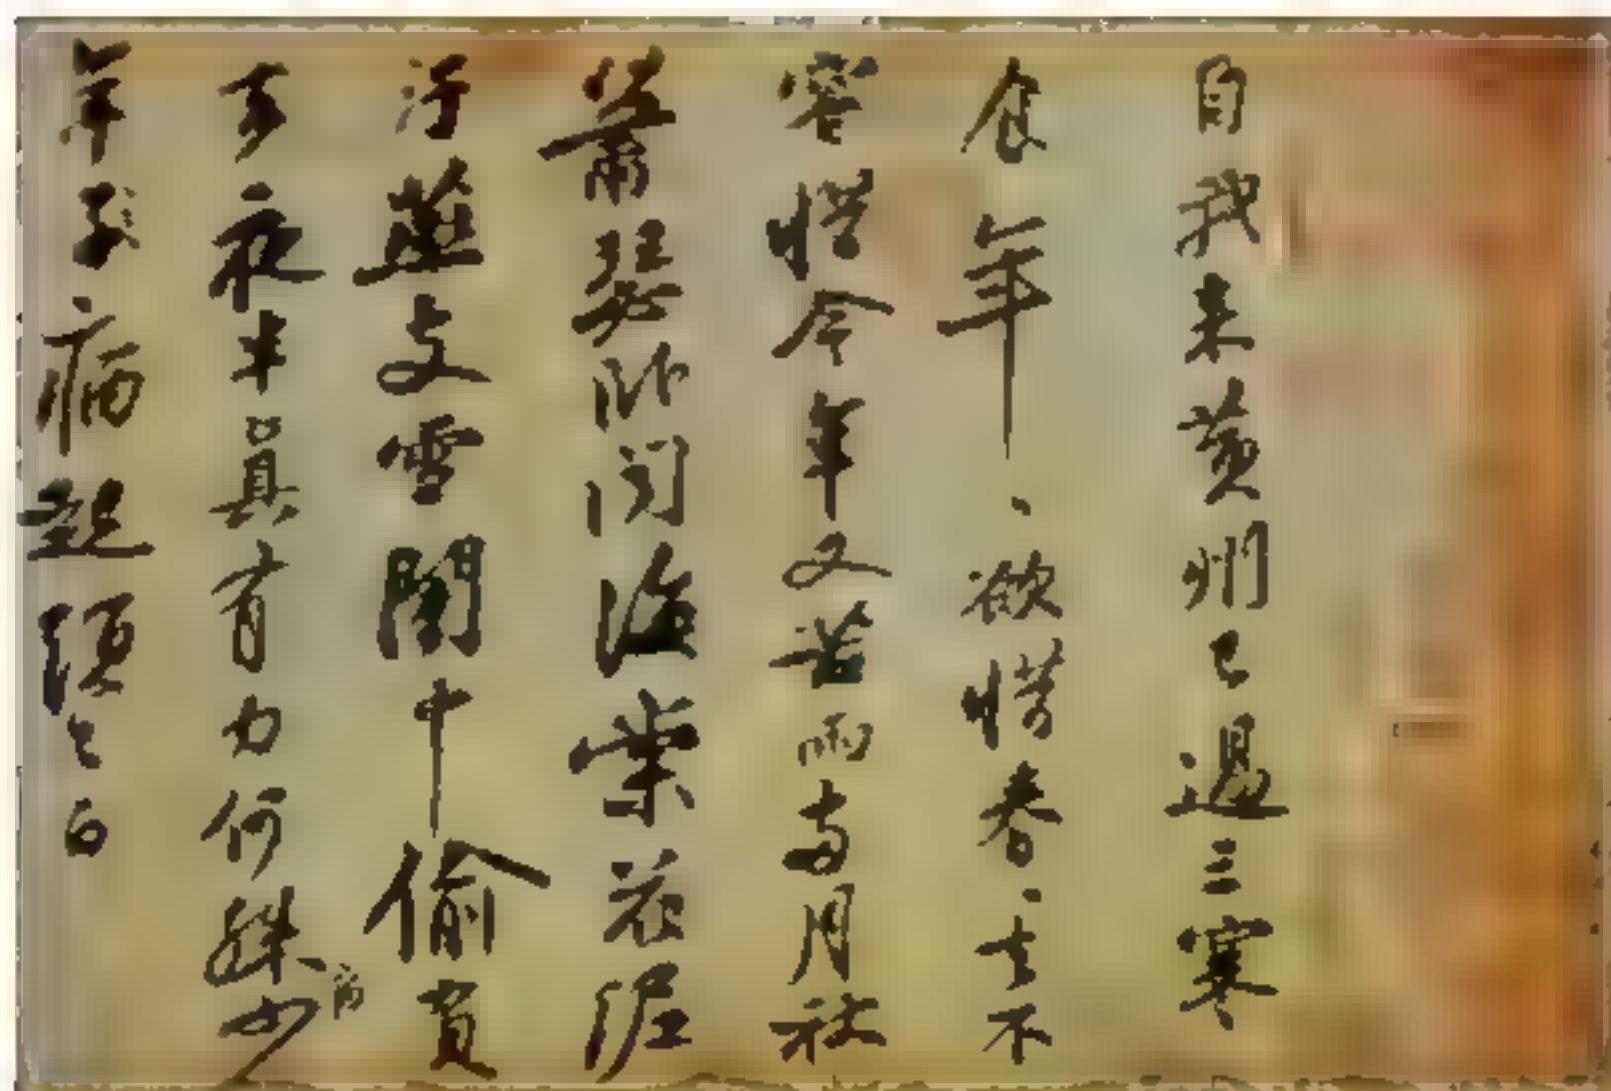 自我来黄州已過三寒
食年々欲惜春々去不
容惜今年又苦雨兩月秋
蕭瑟卧聞海棠花泥
汙燕支雪闇中偷負
去夜半真有力何殊病少
年子病起頭已白